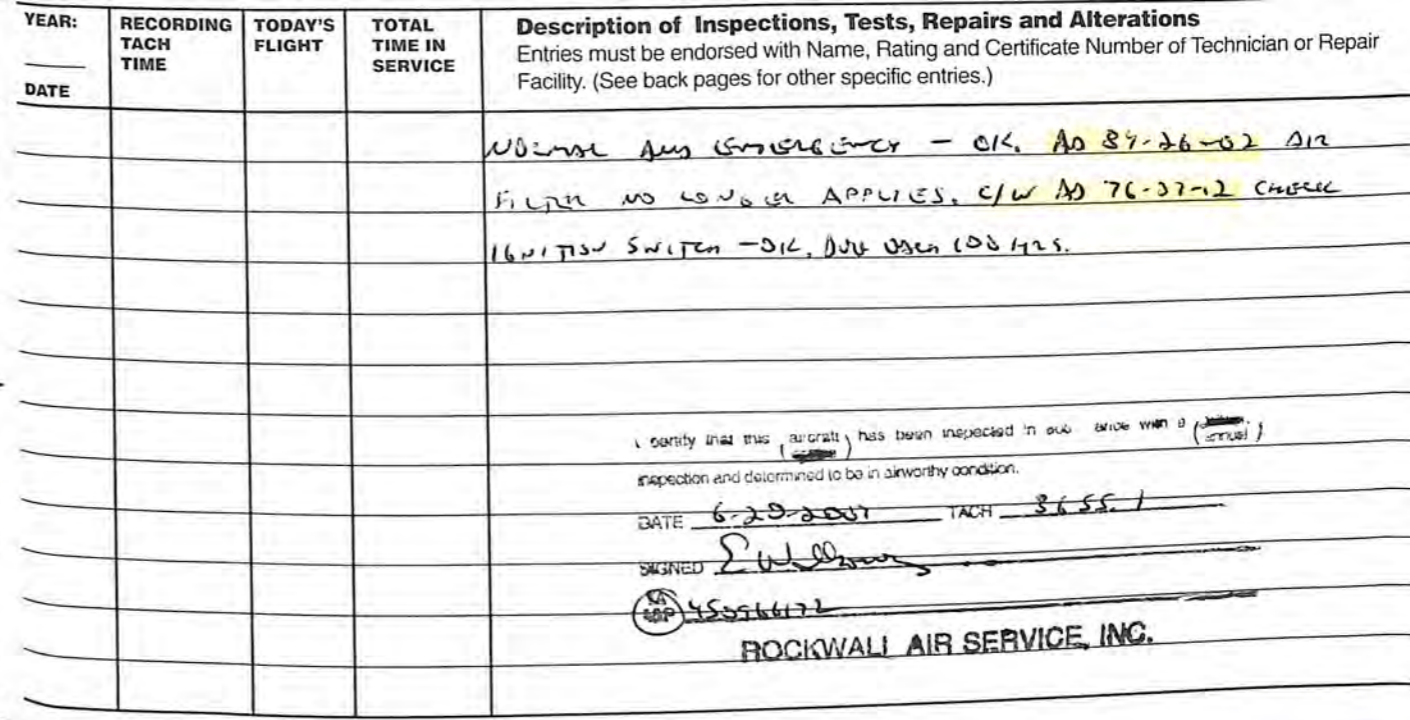 YEAR:
DATE
RECORDING TACH TIME
TODAY'S FLIGHT
TOTAL TIME IN SERVICE
Description of Inspections, Tests, Repairs and Alterations
Entries must be endorsed with Name, Rating and Certificate Number of Technician or Repair
Facility. (See back pages for other specific entries.)
NORMAL AND EMERGENCY - OK. AD 84-26-02 AIR
FILTER NO LONGER APPLIES. C/W AD 76-07-12 CHECK
IGNITION SWITCH - OK. DUE 100 HRS.
I certify that this (aircraft) has been inspected in with a (annual)
inspection and determined to be in airworthy condition.
DATE 6-29-2007 TACH 3655.1
SIGNED
IA A&P 450966172
ROCKWALL AIR SERVICE, INC.